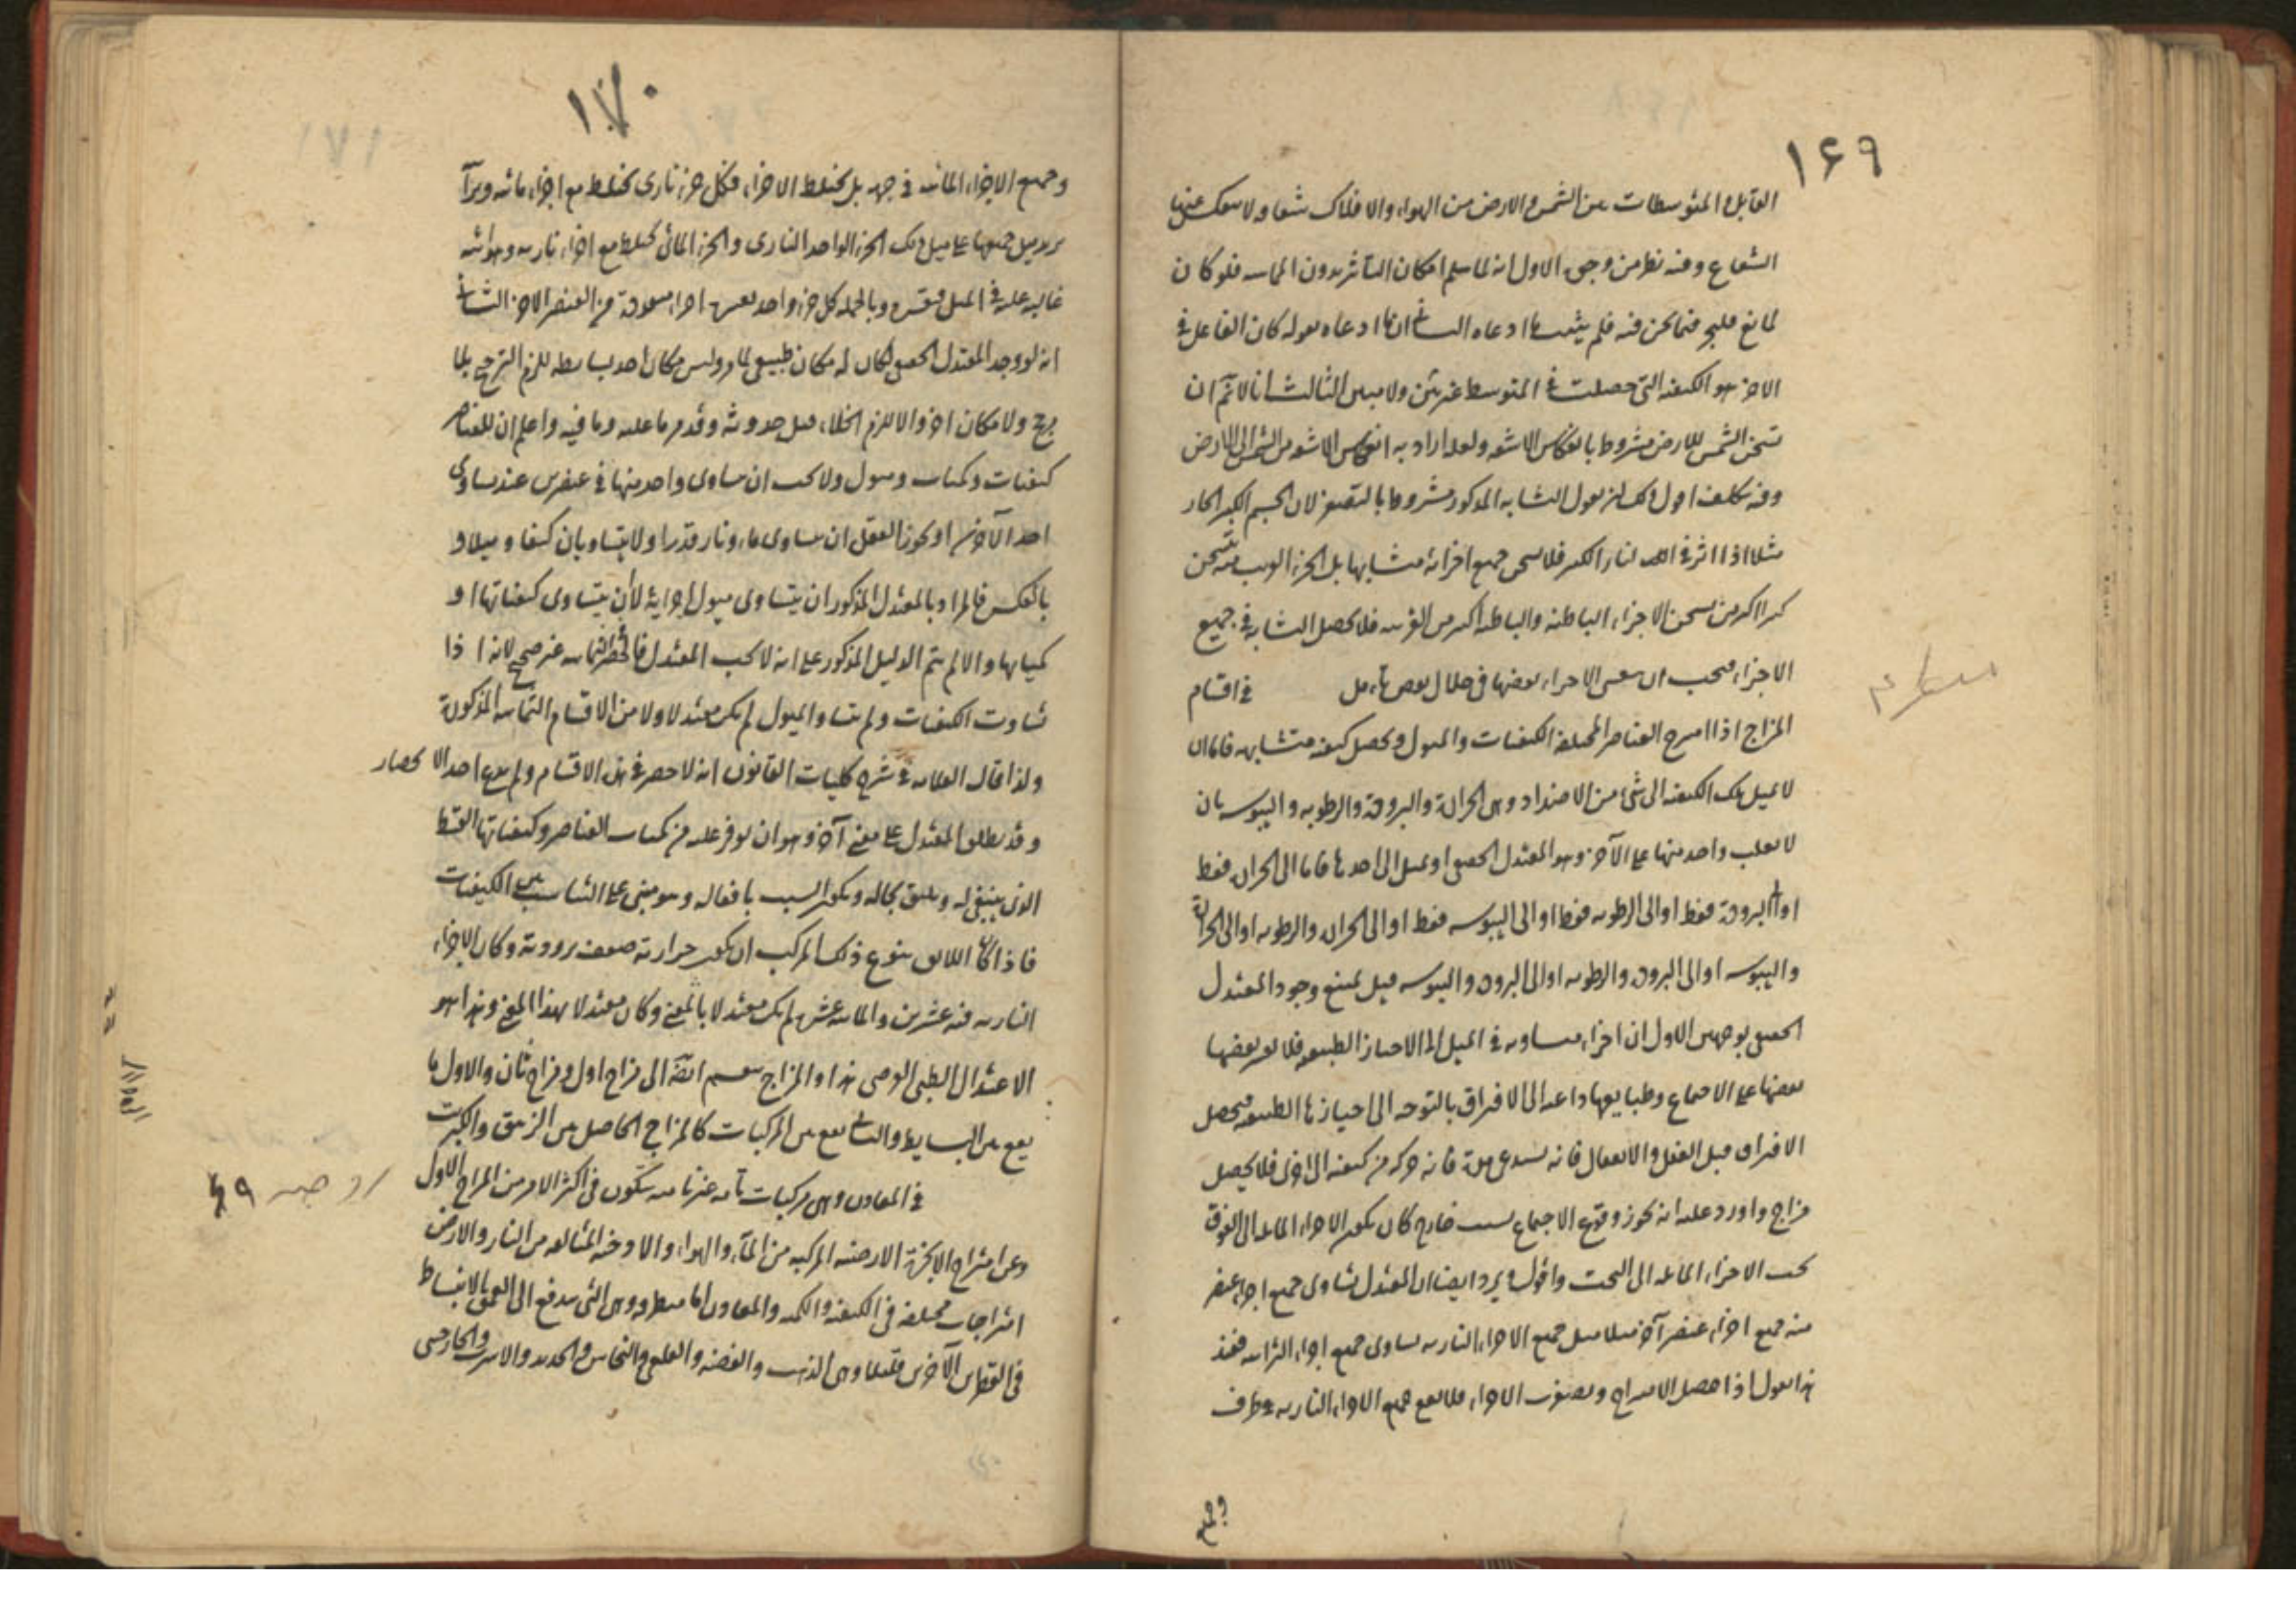 ١۶٩
القابل والمتوسطات بين الشمس والارض من الهواء والافلاك شفا ولا ينعكس عنها
الشعاع وفيه نظر من وجوه الاول انه لما سلم امكان التأثير بدون المماسة فلو كان
لمانع فيما نحن فيه فلم يثبت ما ادعاه الثاني ان ما ادعاه بقوله كان الفاعل في
الاخر هو الكيفية التي حصلت في المتوسط غير بيّن ولا مبين الثالث انا لا نم ان
تسخن الشمس للارض مشروط بانعكاس الاشعة ولعله اراد به انعكاس الاشعة من الشمس الى الارض
وفيه تكلف اقول لك ان يقول التشابه المذكور مشروط بالتصغر لان الجسم الكبير الحار
مثلا اذا اثر فى النار الكبير فلا يسخن جميع اجزائه متشابها بل الجزء القريب منه يتسخن
اكثر من تسخن الاجزاء الباطنة والباطنة من القريبة فلا يحصل التشابه في جميع
الاجزاء فيجب ان الاجزاء بعضها في خلال بعض تأمل في اقسام
المزاج اذا امتزج العناصر المختلفة الكيفيات والميول ويحصل كيفية متشابهة فاما ان
لا يميل تلك الكيفية الى شئ من الاضداد وهي الحرارة والبرودة والرطوبة واليبوسة بان
لا يغلب واحد منها على الآخر وهو المعتدل الحقيقي او يميل الى احدها فاما الى الحرارة فقط
او الى البرودة فقط او الى الرطوبة فقط او الى اليبوسة فقط او الى الحرارة والرطوبة او الى الحرارة
واليبوسة او الى البرودة والرطوبة او الى البرودة واليبوسة قيل يمتنع وجود المعتدل
الحقيقي بوجهين الاول ان اجزاءه متساوية في الميل الى الاحياز الطبيعية فلا يقسر بعضها
بعضها على الاجتماع وطبايعها داعية الى الافتراق بالتوجه الى احيازها الطبيعية فيحصل
الافتراق قبل الفعل والانفعال فانه يستدعي مدة فانه حركة من كيفية الى اخرى فلا يحصل
مزاج واورد عليه انه يجوز وقوع الاجتماع بسبب خارج كان يكون الاجزاء المائلة الى الفوق
تحت الاجزاء المائلة الى التحت واقول ويرد ايضا ان المعتدل تساوى جميع اجزاء عنصر
منه جميع اجزاء عنصر آخر مثلا ميل جميع الاجزاء النارية يساوى جميع اجزاء الترابية فعند
هذا نقول اذا حصل الامتزاج وتصغرت الاجزاء فلا يقع جميع الاجزاء النارية في طرف
وجميع
١٧٠
وجميع الاجزاء المائية في جهة بل يختلط الاجزاء فكل جزء نارى يختلط مع اجزاء مائية
يزيد ميل جميعها على ميل تلك الجزء الواحد النارى والجزء المائى يختلط مع اجزاء نارية وهوائية
غالبة عليه في الميل وبالجملة كل جزء واحد اجزاء من العنصر الآخر الثاني
انه لو وجد المعتدل الحقيقي لكان له مكان طبيعى لما مر وليس مكان احد بسايطه للزم الترجيح بلا
مرجح ولا مكان اخر والا للزم الخلاء قبل حدوثه وقد مر ما عليه وما فيه واعلم ان للعناصر
كيفيات وكميات وميول ولا يجب ان يساوى واحد منها في عنصرين عند تساوى
احد الآخرين او يجوز العقل ان يساوى ماء ونار قدرا ولا يتساويان كيفا وميلا او
بالعكس فالمراد بالمعتدل المذكور ان يتساوى ميول اجزائه لا بأن يتساوى كيفياتها او
كمياتها والا لم يتم الدليل المذكور على انه لا يجب المعتدل فالحصر في الثمانية غير صحيح لانه اذا
تساوت الكيفيات ولم يتساو الميول لم يكن معتدلا ولا من الاقسام الثمانية المذكورة
ولذا قال العلامة في شرح كليات القانون انه لا حصر في هذه الاقسام ولم يدع احد الانحصار
وقد يطلق المعتدل على معنى آخر وهو ان يوفر عليه من كميات العناصر وكيفياتها القسط
الذى ينبغي له ويليق بحاله ويكون انسب بافعاله وهو مبنى على التناسب بين الكيفيات
فاذا كان اللائق بنوع ذلك المركب ان يكون حرارته ضعف برودته وكان الاجزاء
النارية فيه عشرين والمائية عشرة لم يكن معتدلا بالمعنى وكان معتدلا بهذا المعنى وهذا هو
الاعتدال الطبى الفرضى هذا والمزاج ينقسم الى مزاج اول ومزاج ثان والاول ما
يقع بين البسايط والثاني يقع بين المركبات كالمزاج الحاصل من الزيبق والكبريت
في المعادن وهي مركبات تامة غير نامية يتكون في اكثر الامر من المزاج الاول
وعن امتزاج الابخرة الارضية المركبة من الماء والهواء والادخنة المتألفة من النار والارض
امتزاجات مختلفة في الكيفية والكمية والمعادن اما منطرقة وهي التي يندفع الى العمق بالانبساط
في القطرين الآخرين قليلا وهي الذهب والفضة والقلعي والنحاس والحديد والاسرب والخارصيني